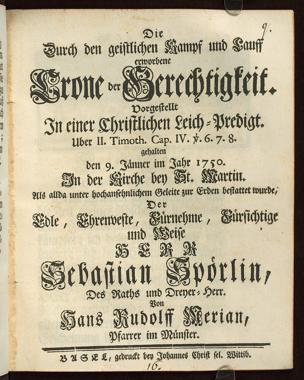 9.
Die
Durch den geistlichen Kampf und Lauff
erworbene
Crone der Gerechtigkeit.
Vorgestellt
In einer Christlichen Leich-Predigt.
Uber II. Timoth. Cap. IV. ℣. 6. 7. 8.
gehalten
den 9. Jänner im Jahr 1750.
In der Kirche bey St. Martin.
Als allda unter hochansehnlichem Geleite zur Erden bestattet wurde,
Der
Edle, Ehrenveste, Fürnehme, Fürsichtige
und Weise
HERR
Sebastian Spörlin,
Des Raths und Dreyer-Herr.
Von
Hans Rudolff Merian,
Pfarrer im Münster.
BASEL, gedruckt bey Johannes Christ sel. Wittib.
16.